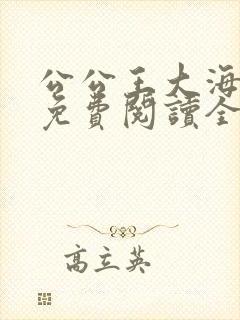 公公王大海
免費閱讀全
高立英